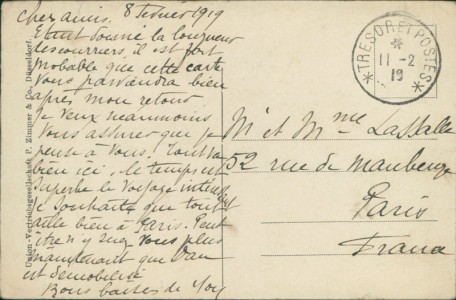 Chers amis. 8 Février 1919
Etant donné la longueur
des courriers, il est fort
probable que cette carte
vous parviendra bien
après mon retour
Je veux néanmoins
vous assurer que je
pense à vous. Tout va
bien ici. Le temps est
superbe le voyage
Je souhaite que tout
aille bien à Paris. Peut
être n'y
maintenant que
est démobilisé
Bons baisers de
Union-Vertriebsgesellschaft P. Zimmer & Co., Düsseldorf.
TRESOR ET POSTES
*
11-2
19
Mr et Mme Lassalle
52 rue de Maubeuge
Paris
France